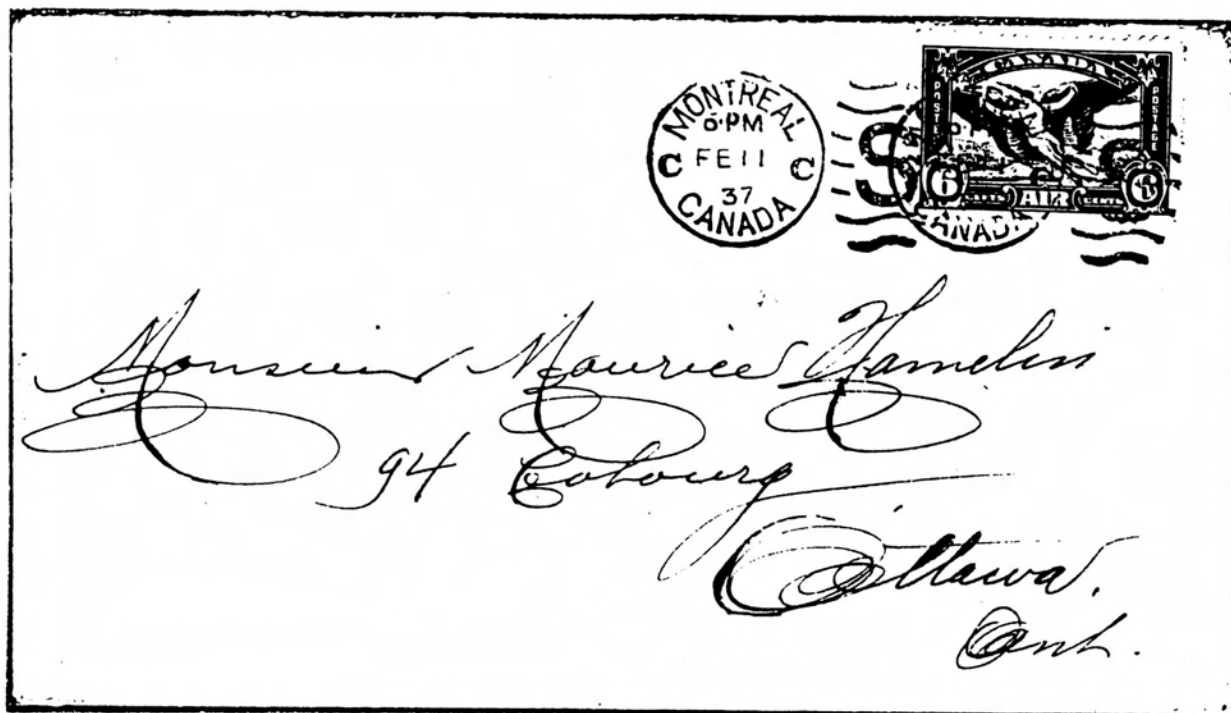 MONTREAL
PM
FE 11
C C
37
CANADA
CANADA
POSTES POSTAGE
6 CENTS AIR CENTS 6
CANADA
Monsieur Maurice Hamelin
94 Cobourg
Ottawa.
Ont.